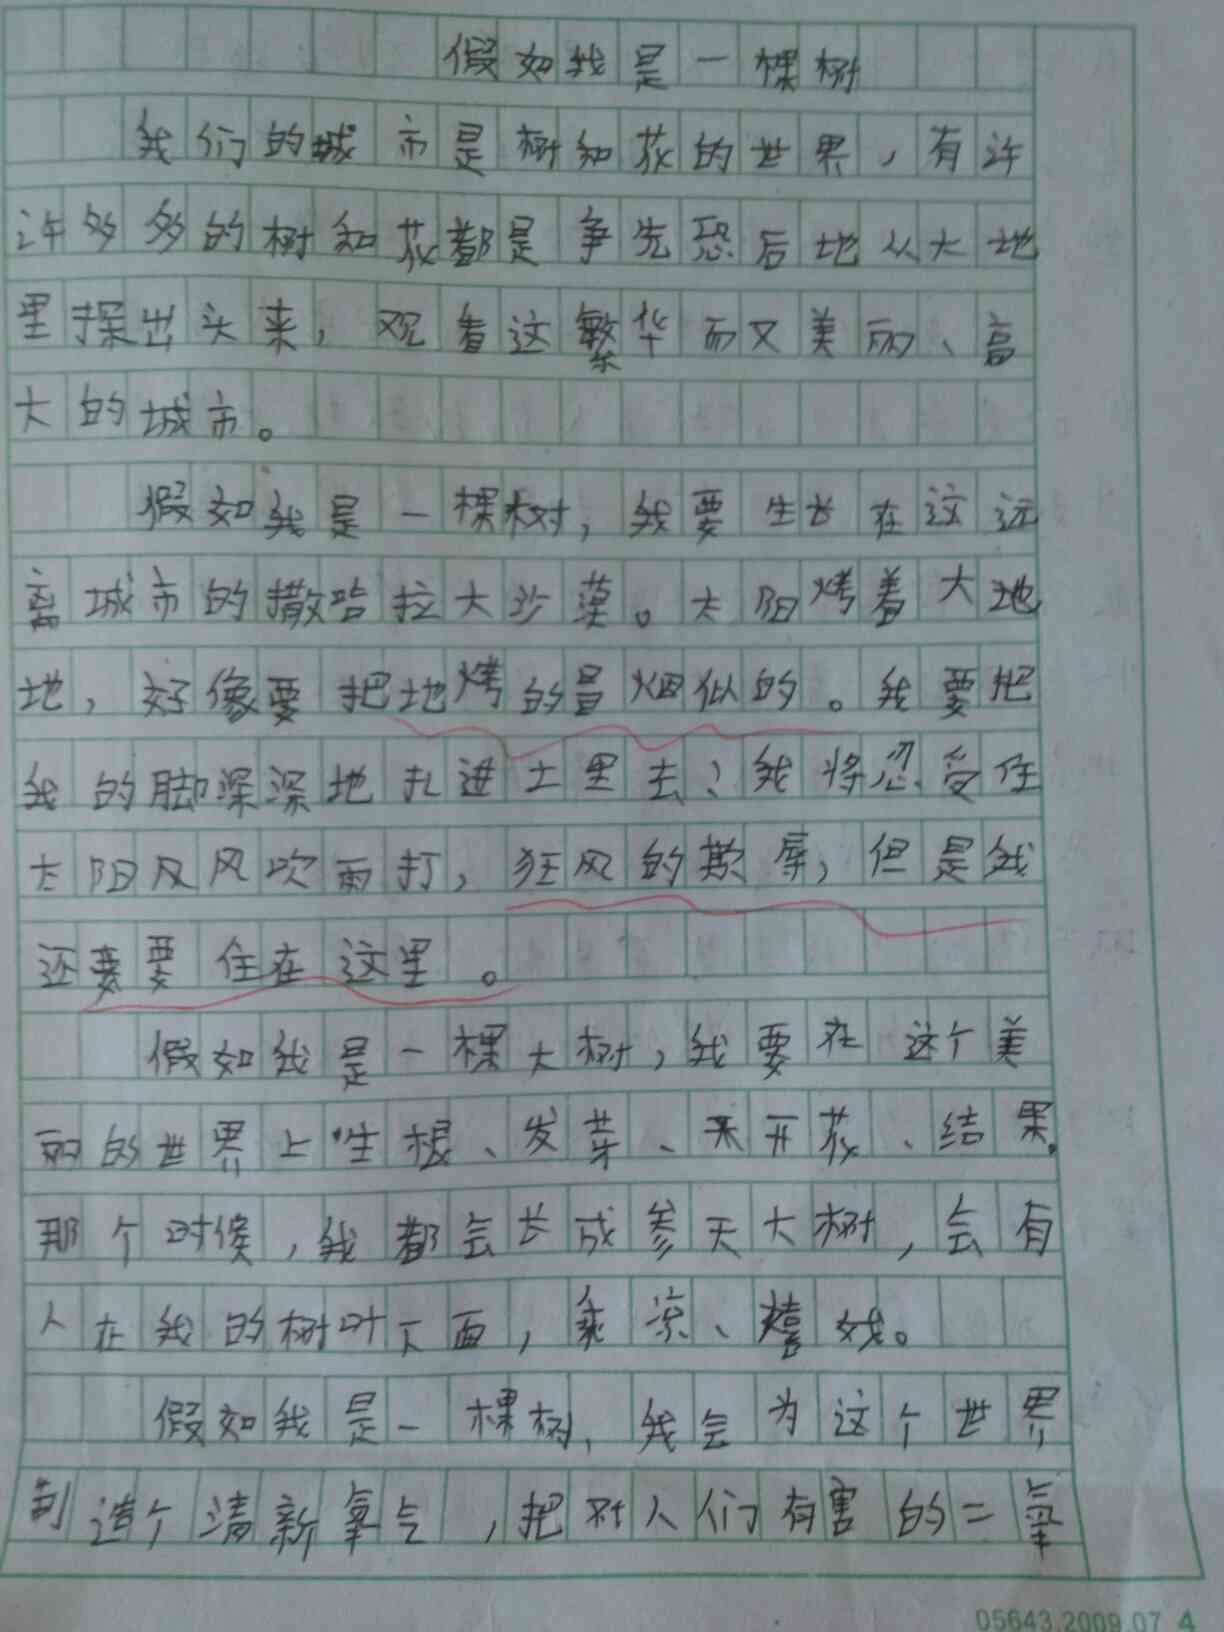 假如我是一棵树
我们的城市是树和花的世界，有许
许多多的树和花都是争先恐后地从大地
里探出头来，观看这繁华而又美丽、高
大的城市。
假如我是一棵树，我要生长在这远
离城市的撒哈拉大沙漠。太阳烤着大地
地，好像要把地烤的冒烟似的。我要把
我的脚深深地扎进土里去，我将忍受住
太阳及风吹雨打，狂风的欺辱，但是我
还要要住在这里。
假如我是一棵大树，我要在这个美
丽的世界上生根、发芽、开花、结果。
那个时候，我都会长成参天大树，会有
人在我的树叶下面，乘凉、嬉戏。
假如我是一棵树，我会为这个世界
制造个清新氧气，把对人们有害的二氧
05643.2009.07 4